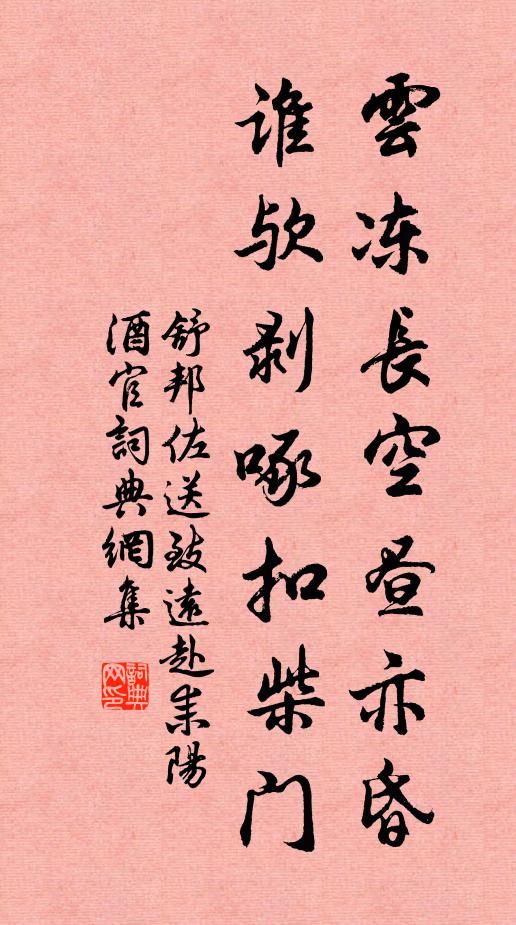 雲冻長空昼亦昏
谁欤剥啄扣柴门
舒邦佐送致遠赴耒陽
酒官詞典網集
詞典网印